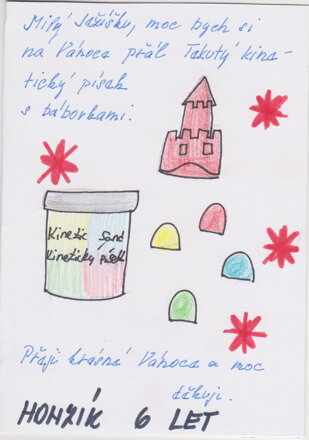 Milý Ježíšku, moc bych si
na Vánoce přál Takutý kine-
tický písek
s bábovkami.
Kinetic Sand
Kinetický písek
Přeji krásné Vánoce a moc
děkuji.
HONZÍK 6 LET